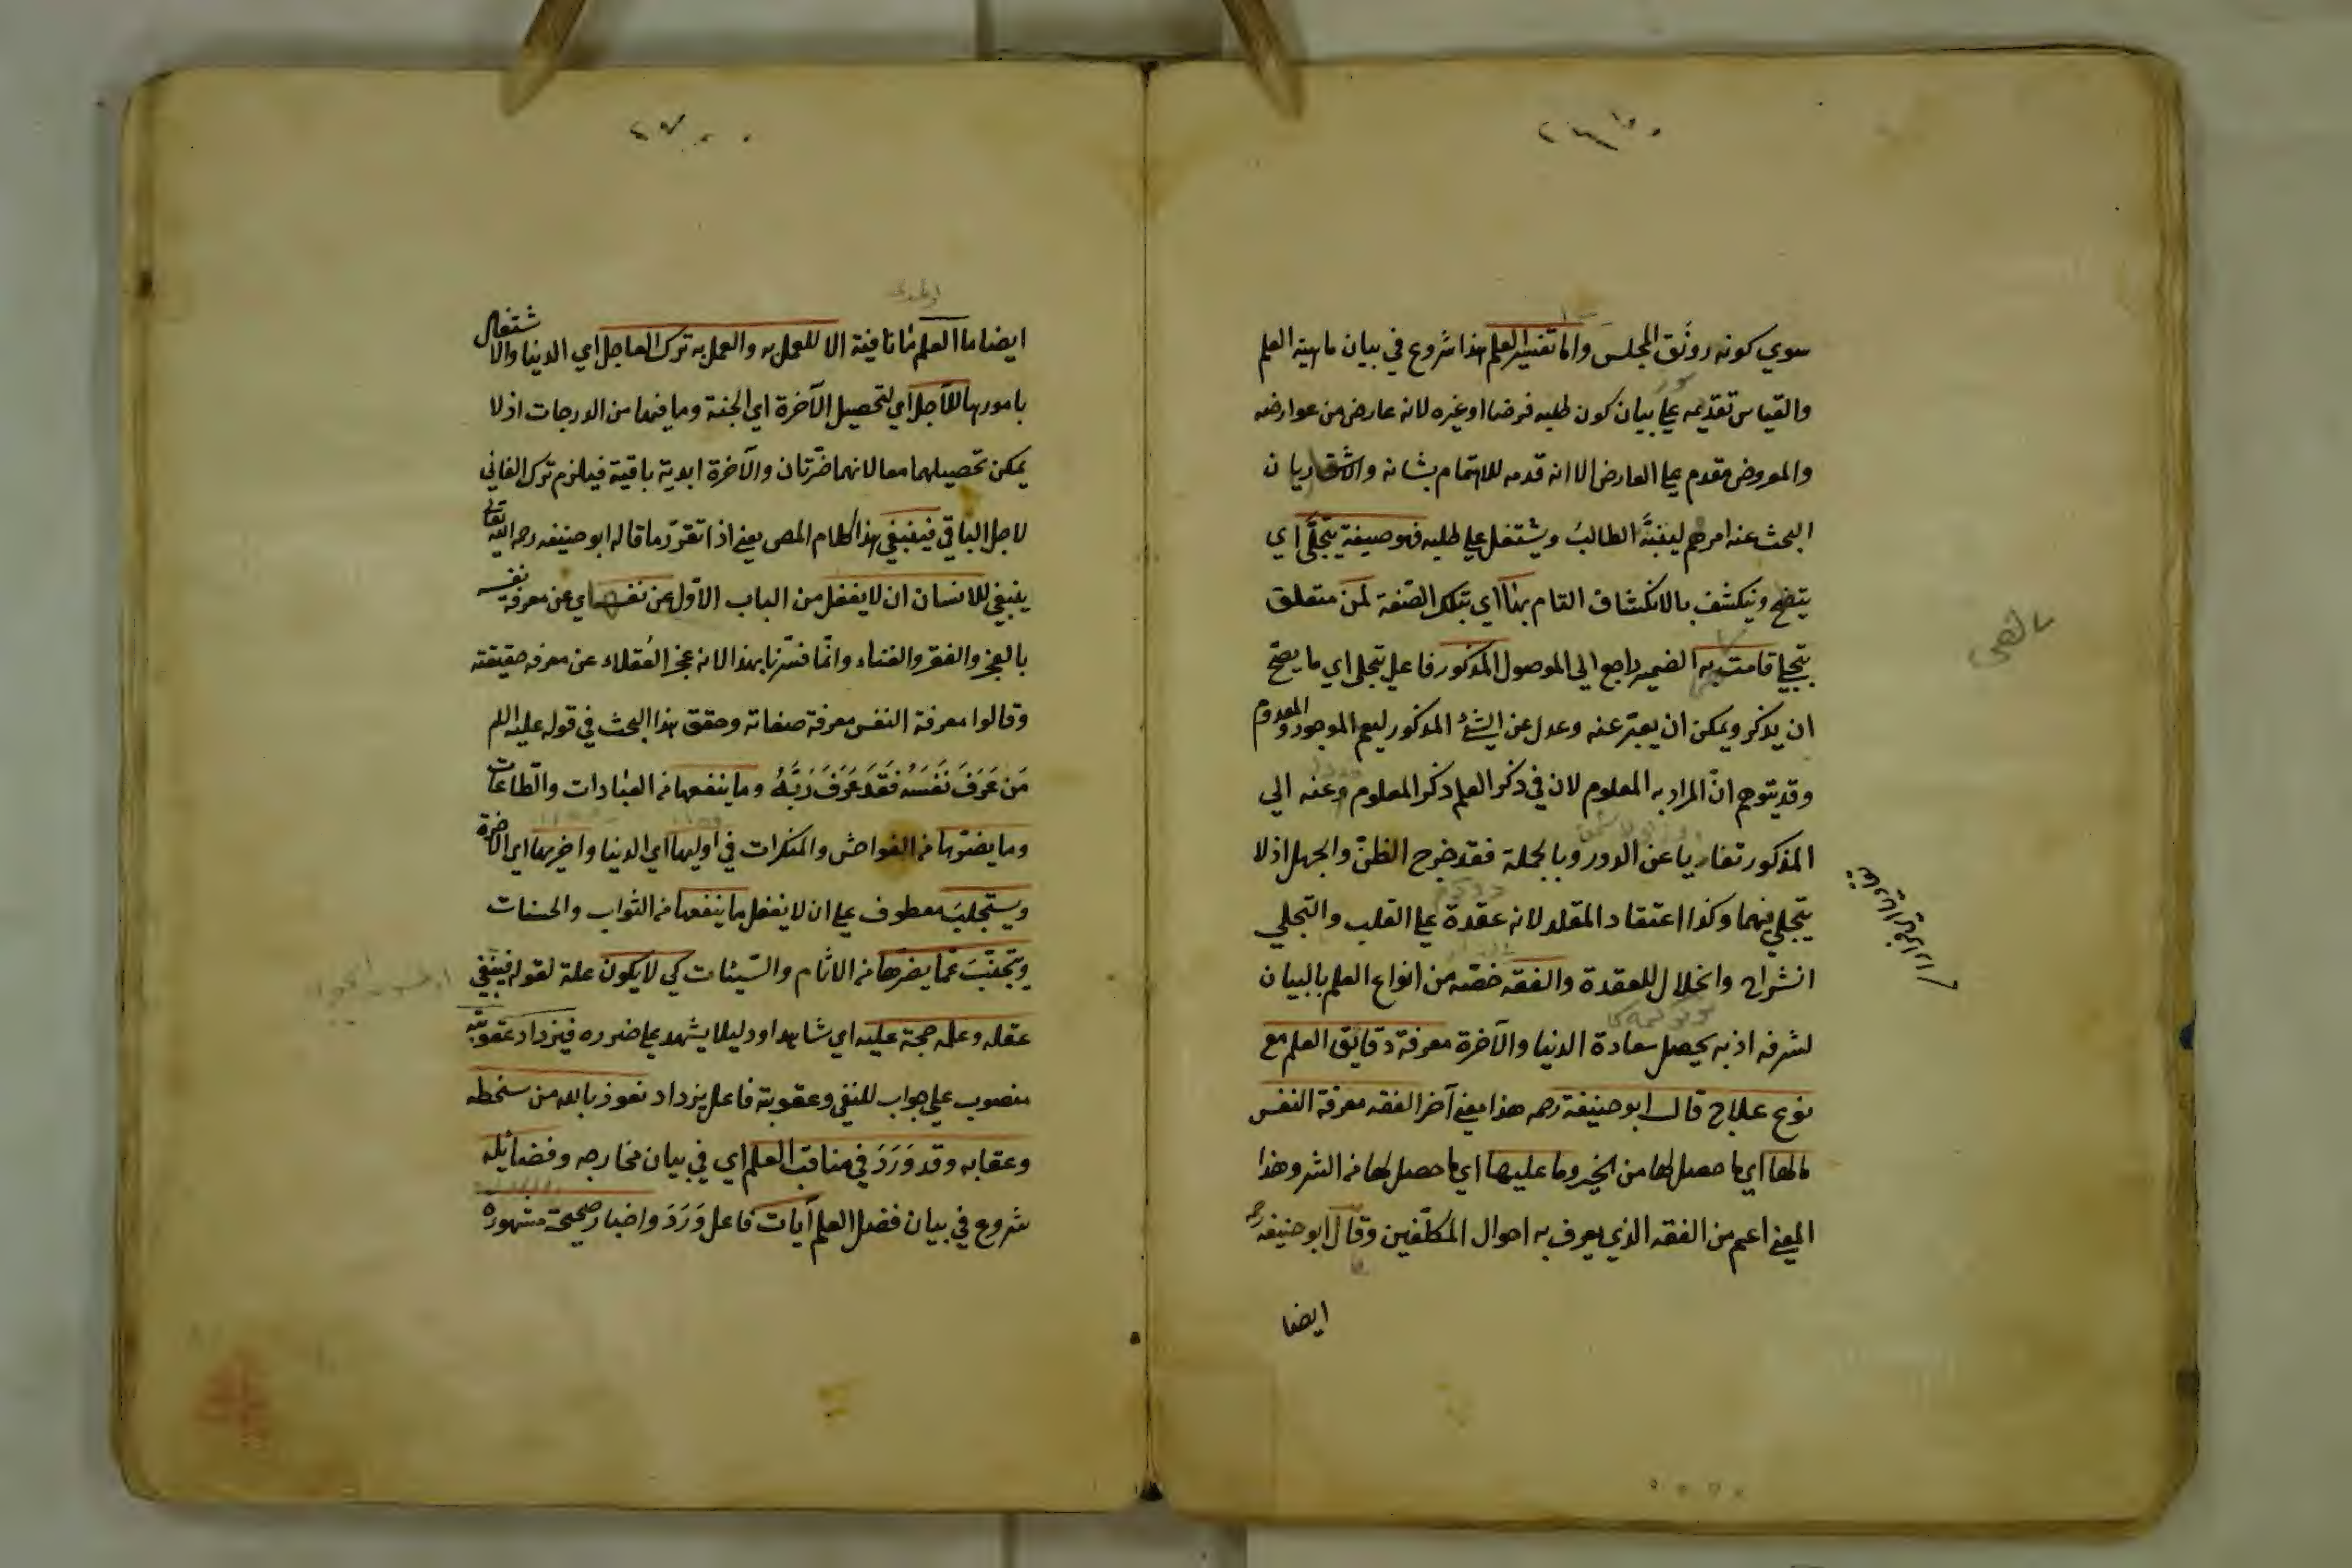 سوي كونه رونق المجلس واما تفسير العلم هذا شروع في بيان ماهية العلم
والقياس تقديمه علي بيان كون طلبه فرضا او غيره لانه عارض من عوارضه
والمعروض مقدم علي العارض الا انه قدمه للاهتمام بشانه والاشعار بان
البحث عنه امر مهم ليتنبه الطالبُ ويشتغل علي طلبه فهو صيغة يتجلّى اي
يتضح وينكشف بالانكشاف التام بها اي بتلك الصّفة لمن متعلق
بتجلي قامت به الضمير راجع الي الموصول المذكور فاعل يتجلي اي ما يصحّ
ان يذكر ويمكن ان يعبّر عنه وعدل عن الشئ المذكور ليعم الموجود والمعدوم
وقد يتوهم انّ المراد به المعلوم لان في ذكر العلم ذكر المعلوم وعنه الي
المذكور تفاديا عن الدور وبالجملة فقد خرج الظنّ والجهل اذ لا
يتجلي فيهما وكذا اعتقاد المقلد لانه عقدة علي القلب والتجلي
انشراح وانحلال للعقدة والفقه خصّه من انواع العلم بالبيان
لشرفه اذ به يحصل سعادة الدنيا والآخرة معرفة دقايق العلم مع
نوع علاج قال ابو حنيفة رحمه هذا معني آخر الفقه معرفة النفس
مالها اي ما حصل لها من الخير وما عليها اي ما حصل لها من الشر وهذا
المعني اعم من الفقه الذي يعرف به احوال المكلّفين وقال ابو حنيفه رحمه
ايضا
ايضا ما العلم ثانا فيته الا للعمل به والعمل به ترك العاجل اي الدنيا والاشتغال
بامورها للآجل اي لتحصيل الآخرة اي الجنة وما فيها من الدرجات اذ لا
يمكن تحصيلهما معا لانهما ضرّتان والآخرة ابدية باقية فيلزم ترك الفاني
لاجل الباقي فينبغي هذا كلام المص يعني اذا تقرّر ما قاله ابو حنيفه رحمه الله تعالي
ينبغي للانسان ان لا يغفل من الباب الاوّل عن نفسه اي عن معرفة نفسه
بالعجز والفقر والفناء وانّما فسّرنا بهذا لانه عجز العُقلاء عن معرفه حقيقته
وقالوا معرفة النفس معرفة صفاته وحقق هذا البحث في قوله عليه السلم
مَن عَرَفَ نَفْسَه فَقَد عَرَفَ رَبَّهُ وما ينفعها من العبادات والطّاعات
وما يضرّها من الفواحش والمنكرات في اوليها اي الدنيا واخريها اي الآخرة
ويستجلبَ معطوف علي ان لا يغفل ما ينفعها من الثواب والحسنات
ويتجنّبَ عمّا يضرها من الاثام والسّيئات كي لا يكون علة لقوله فينبغي
عقله وعلمه حجة عليه اي شاهدا ودليلا يشهد علي ضرره فيزداد عقوبته
منصوب علي جواب للنفي وعقوبته فاعل يزداد نعوذ بالله من سخطه
وعقابه وقد وَرَدَ في مناقب العلم اي في بيان مفاخره وفضائله
شروع في بيان فضل العلم آيات فاعل وَرَدَ واخبار صحيحة مشهورة